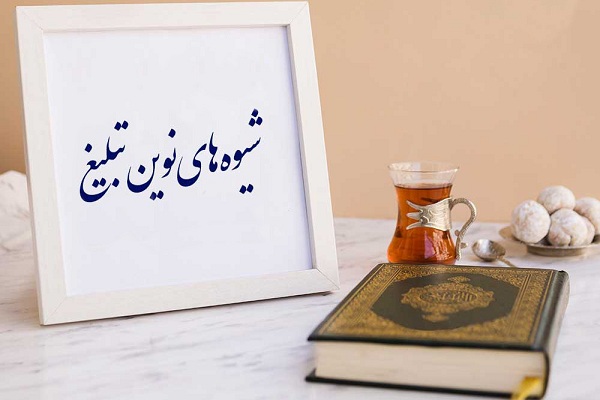 شیوه های نوین تبلیغ